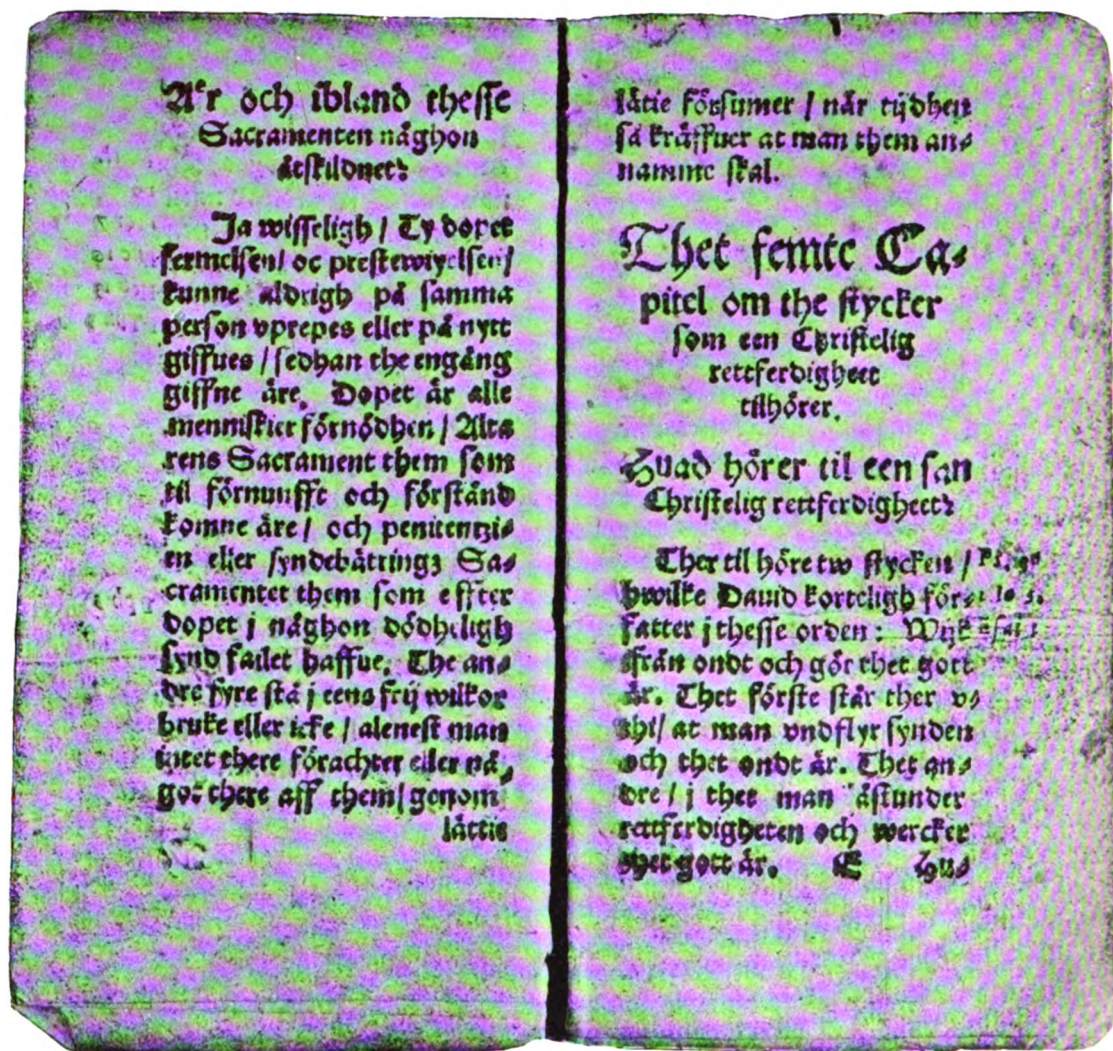 Är och ibland thesse
Sacramenten någhon
åtskildnet?
Ja wisseligh / Ty dopet
fermelsen / oc prestewiyelsen /
kunne aldrigh på samma
person vprepes eller på nytt
giffues / sedhan the engång
giffne äre. Dopet är alle
menniskier förnödhen / Alta
rens Sacrament them som
til förnunfft och förstånd
komne äre / och penitentzi⸗
en eller syndebätringz Sa⸗
cramentet them som effter
dopet j någhon dödheligh
synd fallet haffue. The an⸗
dre fyre stå j eens frij wilkor
bruke eller icke / alenest man
intet there förachter eller nå⸗
got there aff them / genom
lättie
lättie försumer / når tijdhen
så kräffuer at man them an⸗
namme skal.
Thet femte Ca⸗
pitel om the stycker
som een Christelig
rettferdigheet
tilhörer.
Huad hörer til een san
Christelig rettferdigheet?
Ther til höre tw stycken /
hwilke Dauid korteligh för⸗
fatter j thesse orden: Wijk
ifrån ondt och gör thet gott
är. Thet förste står ther v⸗
thi / at man vndflyr synden
och thet ondt är. Thet an⸗
dre / j thet man åstunder
rettferdigheten och wercker
thet gott är. E Hu⸗